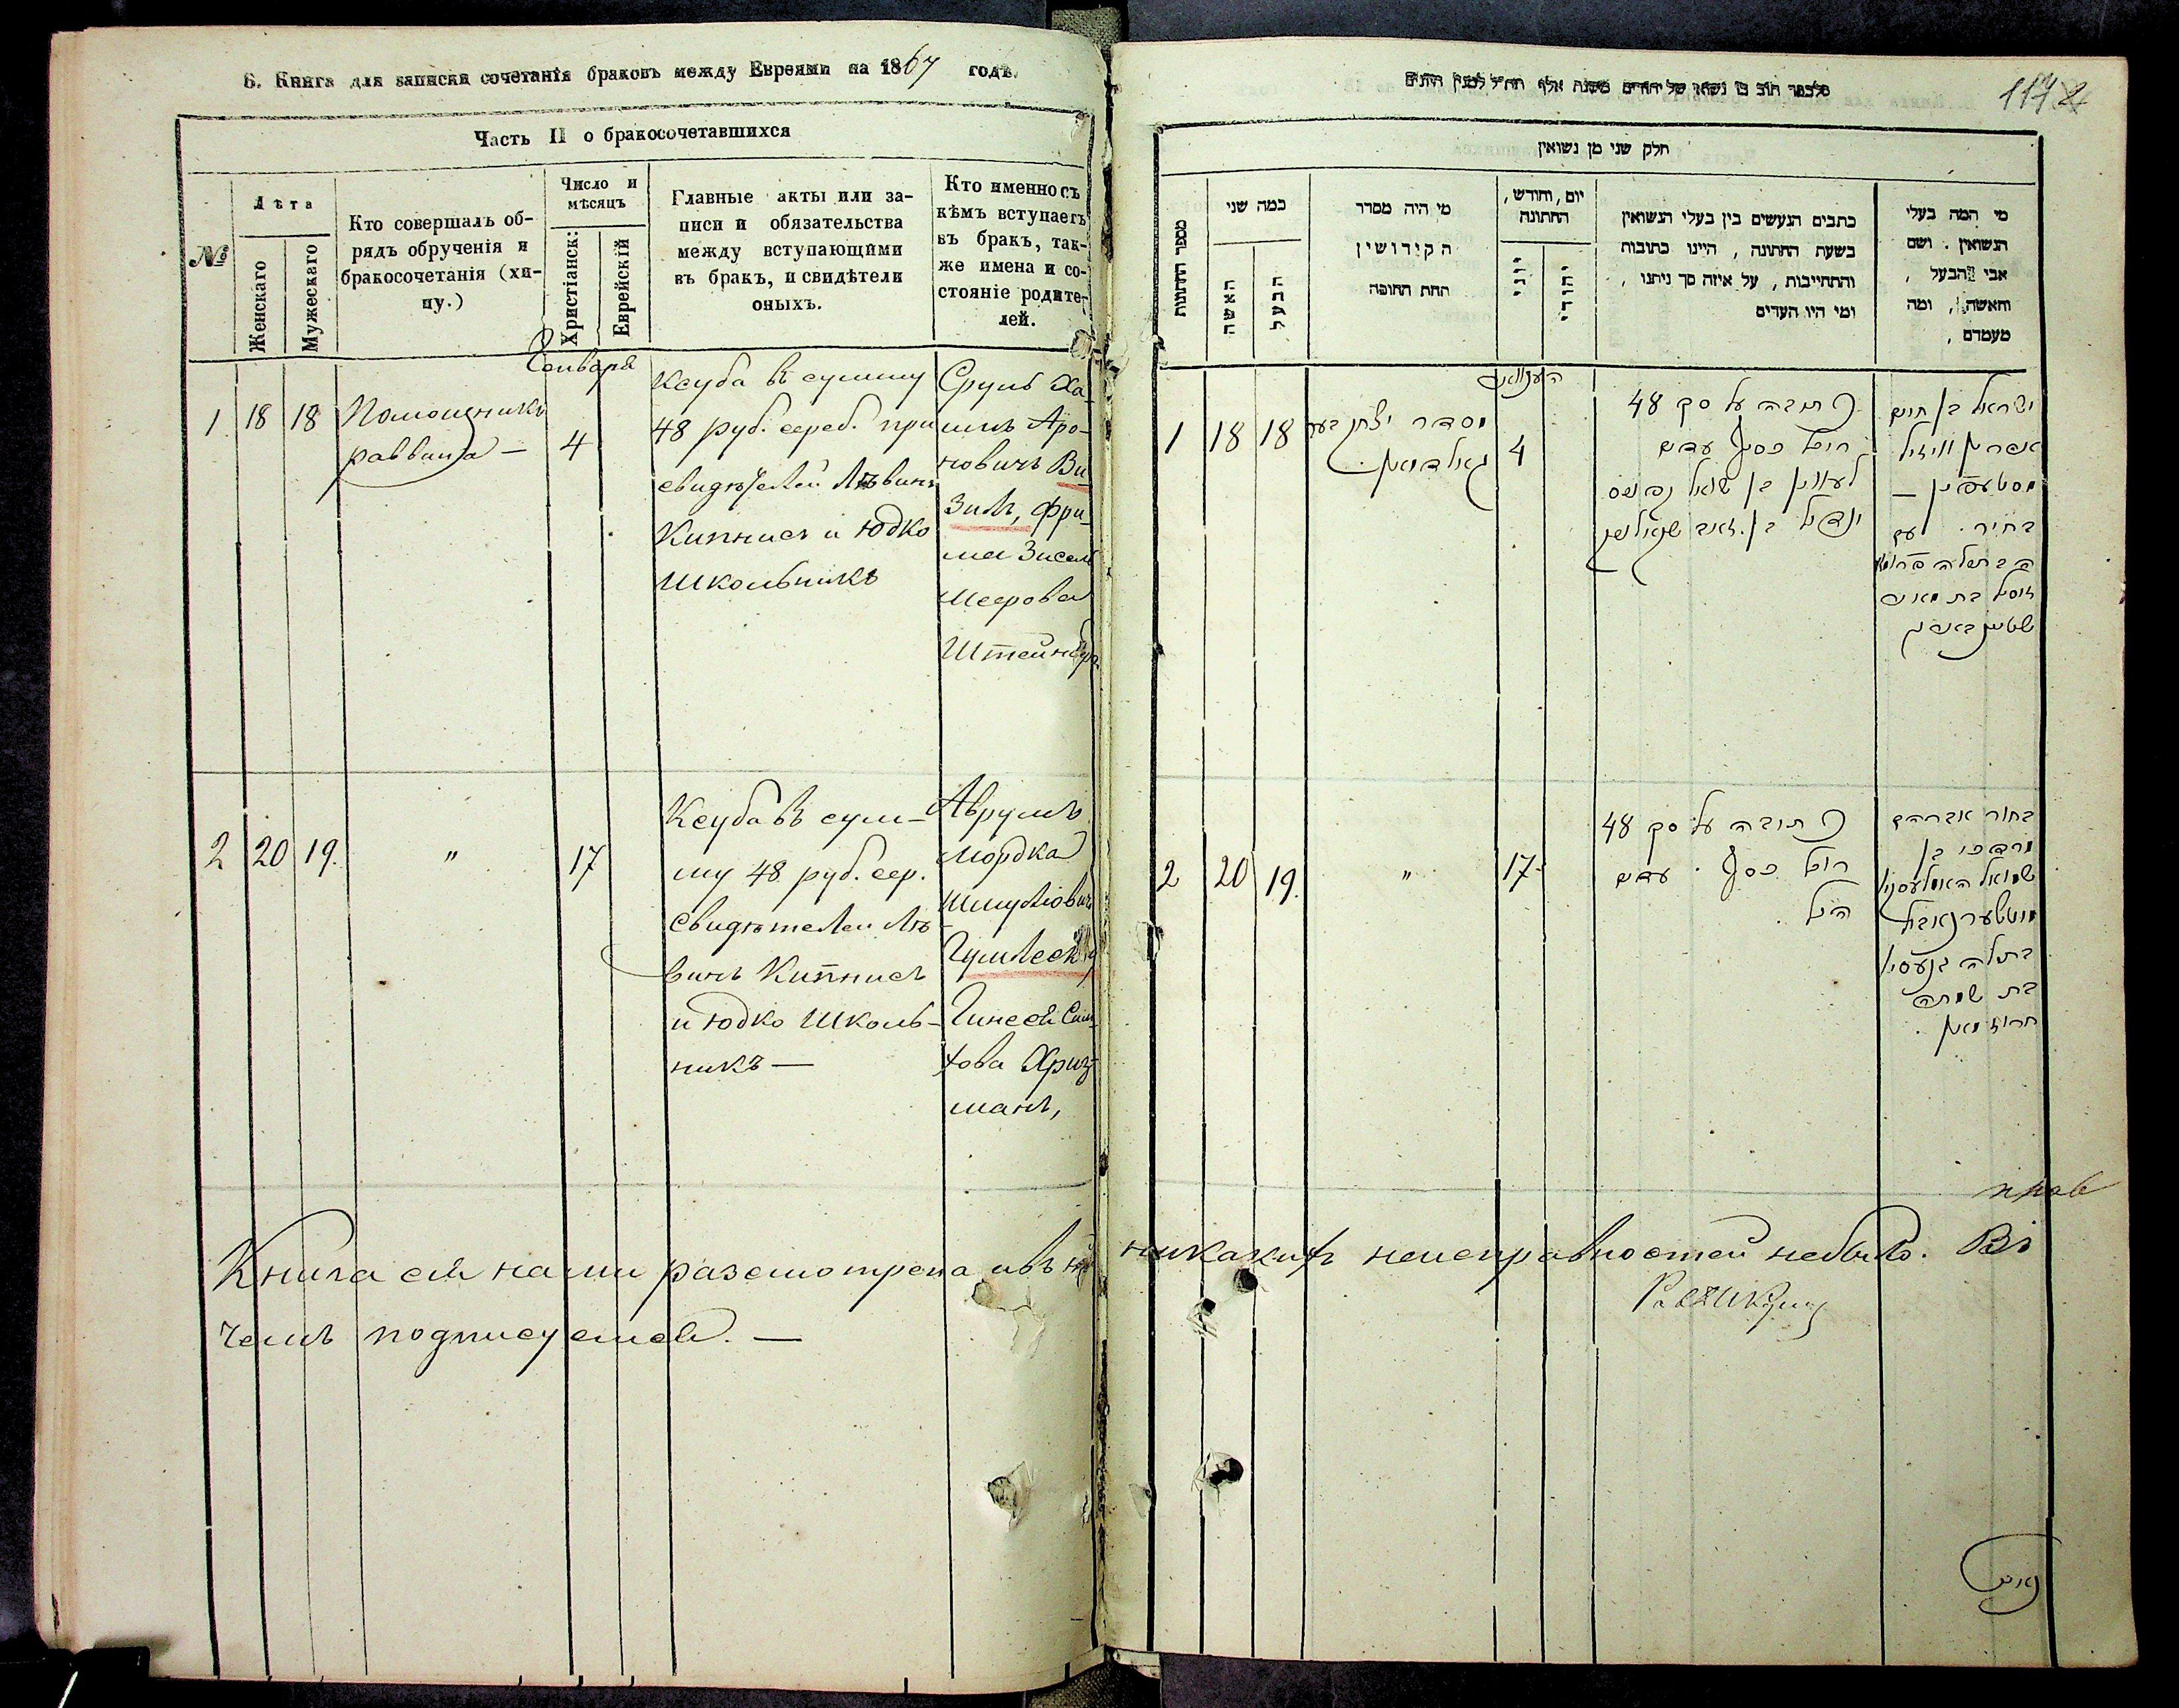 6. Книга для записки сочетанія браковъ между Евреями на 1867 годъ.
Часть II о бракосочетавшихся
№
Лѣта
Женскаго
Мужескаго
Кто совершалъ об-
рядъ обрученія и
бракосочетанія (хи-
пу.)
Число и
мѣсяцъ
Христіанск:
Еврейскій
Главные акты или за-
писи и обязательства
между вступающими
въ бракъ, и свидѣтели
оныхъ.
Кто именно съ
кѣмъ вступаетъ
въ бракъ, так-
же имена и со-
стояніе родите-
лей.
Генваря
1 18 18
Помощникъ
раввина —
4
Ксуба въ сумму
48 руб. сереб. при
свидѣтелей Лѣвинъ
Кипнисъ и Юдко
Школьникъ
Сруль Ха-
имъ Аро-
новичъ Ви-
зиль, Фри-
ма Зисель
Меерова
Штейнбер
2 20 19. " 17
Ксуба въ сум-
му 48 руб. сер.
свидѣтелей Лѣ-
винъ Кипнисъ
и Юдко Школь-
никъ —
Аврумъ
Мордка
Шмулiовичъ
Гумлеск
Гинесе Сим
хова Хриз-
манъ,
Книга сія нами разсмотрена и въ ней
чемъ подписуемся. —
117 2
חלק שני מן נשואין
מספר החתונות
כמה שני
האשה
הבעל
מי היה מסדר
הקידושין
תחת החופה
יום, וחודש,
החתונה
יווני
יהודי
כתבים הנעשים בין בעלי הנשואין
בשעת החתונה, היינו כתובות
והתחייבות, על איזה סך ניתנו,
ומי היו העדים
מי המה בעלי
הנשואין. ושם
אבי הבעל,
והאשה, ומה
מעמדם,
1 18 18
מסדר יצחק בער
גאלדמאן.
4
כתובה על סך 48
רובל כסף עדים
ישראל בן חיים
בחיר. עם
הבתולה פרומא
זיסל בת מאיר
שטיינבערג
2 20 19. " 17
כתובה על סך 48
רובל כסף. עדים
הנ״ל.
בחור אברהם
מרדכי בן
שמואל
בתולה גנעסיל
בת שמחה
חריזמאן.
прав
никакихъ неисправностей небыло. Въ